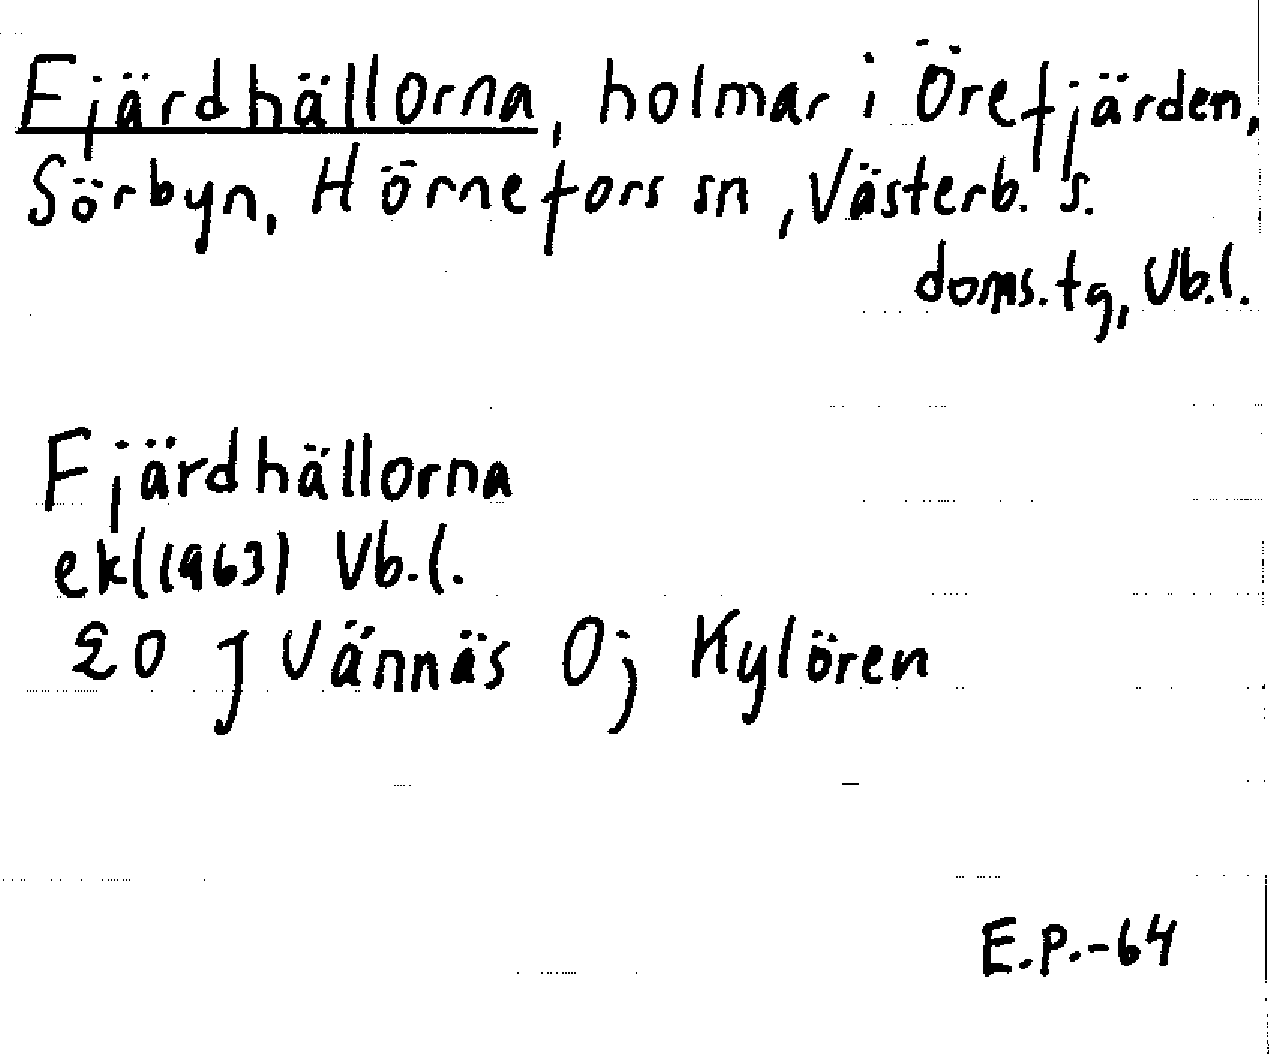 Fjärdhällorna, holmar i Örefjärden,
Sörbyn, Hörnefors sn, Västerb. s.
doms.tg, Vb.l.
Fjärdhällorna
ek(1963) Vb.l.
20 J Vännäs 0j Kylören
E.P.-64